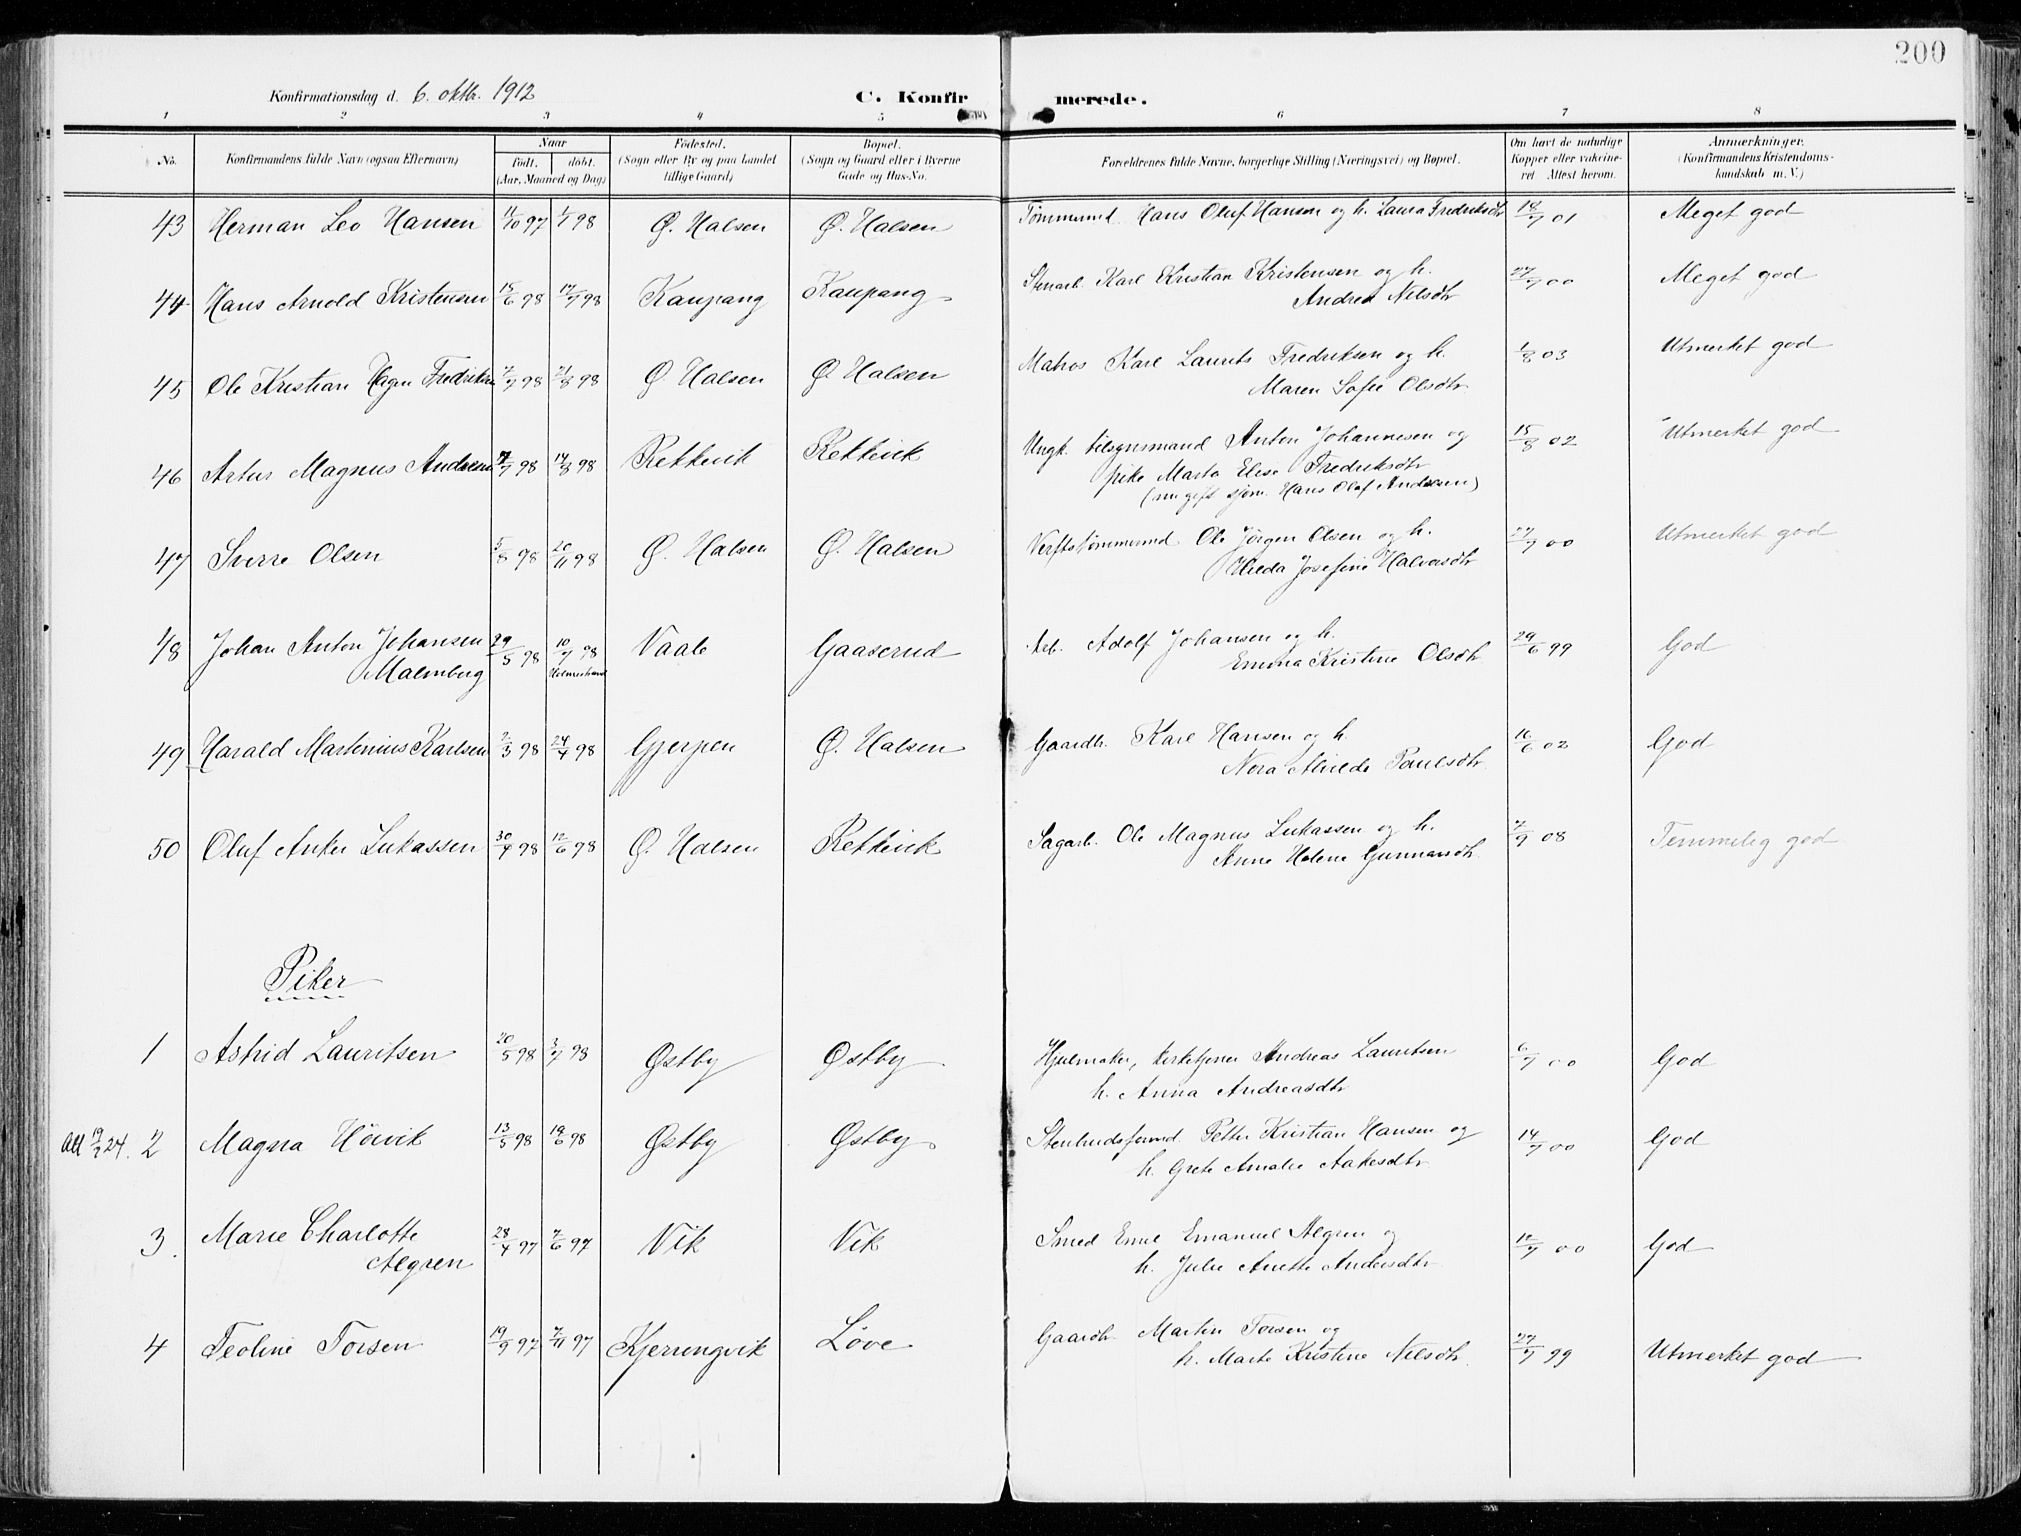 200
Konfirmationsdag d. 6. oktb. 1912
C. Konfirmerede.
1 2 3 4 5 6 7 8
No. Konfirmandens fulde Navn (ogsaa Efternavn) Naar født. døbt. (Aar, Maaned og Dag) Fødested. (Sogn eller By og paa Landet tillige Gaard) Bopæl. (Sogn og Gaard eller i Byerne Gade og Hus-No. Forældrenes fulde Navne, borgerlige Stilling (Næringsvei) og Bopæl. Om havt de naturlige Kopper eller vakcineret Attest herom. Anmærkninger. (Konfirmandens Kristendomskundskab m. V.)
43 Herman Leo Hansen 11/10 97 1/1 98 Ø. Halsen Ø. Halsen Tømmermd. Hans Oluf Hansen og h. Laura Fredriksdtr 18/7 01 Meget god
44 Hans Arnold Kristensen 15/6 98 17/7 98 Kaupang Kaupang Stenarb. Karl Kristian Kristensen og h. 27/7 00 Meget god
Andrea Nilsdtr
45 Ole Kristian Hagen Fredriksen 7/7 98 21/8 98 Ø. Halsen Ø. Halsen Matros Karl Laurits Fredriksen og h. 1/8 03 Utmerket god
Maren Sofie Olsdtr
46 Artur Magnus Andresen 7/7 98 14/8 98 Rekkevik Rekkevik Ungk. tilsynsmand Anton Johannesen og 15/8 02 Utmerket god
pike Marta Elise Fredriksdtr
(nu gift sjøm. Hans Olaf Andresen)
47 Sverre Olsen 5/8 98 20/11 98 Ø. Halsen Ø. Halsen Verftstømmermd Ole Jørgen Olsen og h. 27/7 00 Utmerket god
Hilda Josefine Halvorsdtr
48 Johan Anton Johansen 29/5 98 10/7 98 Vaale Gaaserud Arb. Adolf Johansen og h. 29/6 99 God
Malmberg Holmestrand Emma Kristine Olsdtr
49 Harald Martinius Karlsen 2/3 98 24/4 98 Gjerpen Ø. Halsen Gaardbr. Karl Hansen og h. 16/6 02 God
Nora Alvilde Paulsdtr
50 Oluf Anker Lukassen 30/4 98 12/6 98 Ø. Halsen Rekkevik Sagarb. Ole Magnus Lukassen og h. 7/9 08 Temmelig god
Anne Helene Gunnarsdtr
Piker
1 Astrid Lauritsen 20/5 98 3/7 98 Østby Østby Hjulmaker, kirketjener Andreas Lauritsen 6/7 00 God
h. Anna Andreasdtr
Att 19/2 24. 2 Magna Høivik 13/5 98 19/6 98 Østby Østby Stenhuds­formd. Petter Kristian Hansen og 14/7 00 God
h. Grete Amalie Aakesdtr
3. Marie Charlotte 28/4 97 7/6 97 Vik Vik Smed Emil Emanuel Algren og 12/7 00 God
Algren h. Julie Anette Andersdtr
4 Teoline Torsen 19/9 97 7/11 97 Kjerringvik Løve Gaardbr. Martin Torsen og 27/7 99 Utmerket god
h. Marte Kristine Nilsdtr